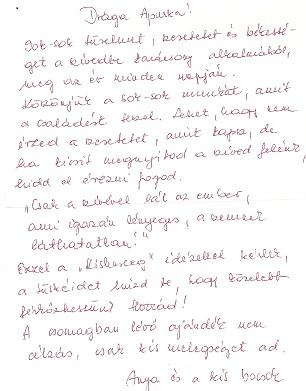 Drága Apuska!
Sok-sok türelmet, szeretetet és békessé-
get a szívedbe karácsony alkalmából,
meg az év minden napján.
Köszönjük a sok-sok munkát, amit
a családért teszel. Lehet, hogy nem
érzed a szeretetet, amit kapsz, de
ha kicsit megnyitod a szíved felénk,
hidd el érezni fogod.
"Csak a szívével lát az ember,
ami igazán lényeges, a szemnek
láthatatlan!"
Ezzel a "Kisherceg" idézettel kérlek,
a tüskéidet húzd be, hogy közelebb
férkőzhessünk Hozzád!
A csomagban lévő ajándék nem
, csak kis melegséget ad.
Anya és a kis